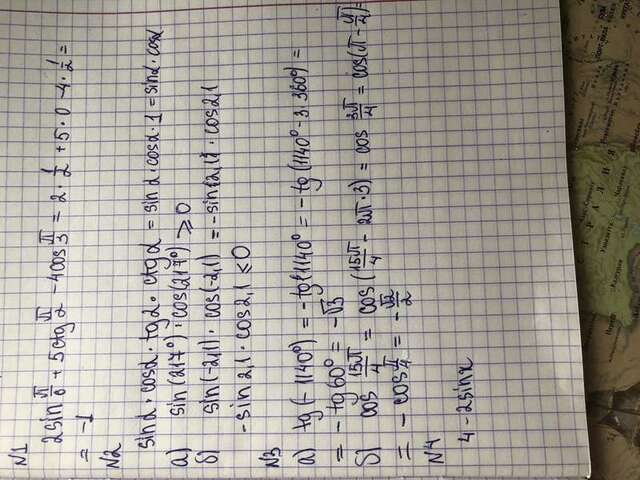 №1
2sin π/6 + 5ctg π/2 - 4cos π/3 = 2 · 1/2 + 5 · 0 - 4 · 1/2 =
= -1
№2
sinα · cosα · tgα · ctgα = sinα · cosα · 1 = sinα · cosα
а) sin(217°) · cos(217°) ⩾ 0
б) sin(-2,1) · cos(-2,1) = -sin(2,1) · cos2,1
-sin2,1 · cos2,1 < 0
№3
а) tg(-1140°) = -tg1140° = -tg(1140° - 3·360°) =
= -tg60° = -√3
б) cos 15π/4 = cos(15π/4 - 2π·3) = cos 3π/4 = cos(π - π/4) =
= -cos π/4 = -√2/2
№4
4 - 2sinx
СТРАЛИЯ